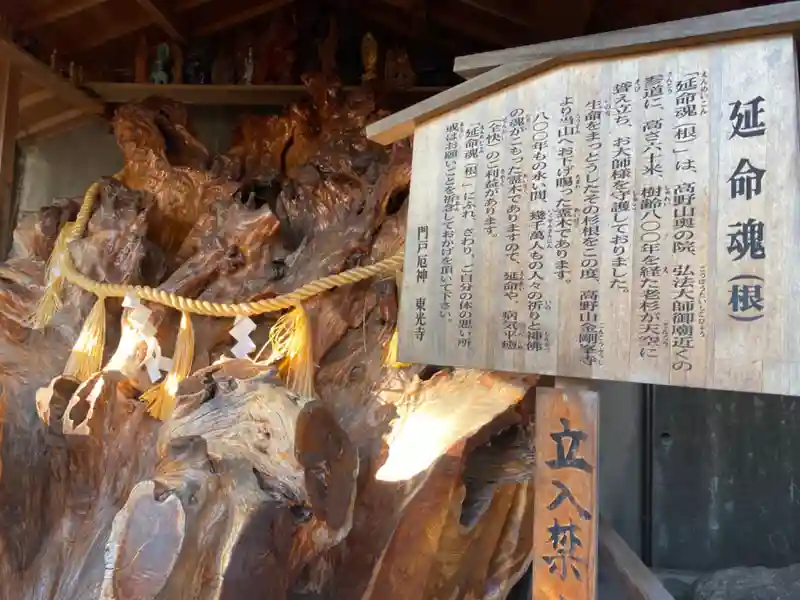 延命魂（根）
「延命魂（根）」は、高野山奥の院、弘法大師御廟近くの
参道に、高さ六十米、樹齢八〇〇年を経た老杉が天空に
聳え立ち、お大師様を守護しておりました。
生命をまっとうしたその杉根をこの度、高野山金剛峯寺
より当山へお下げ賜った霊木であります。
八〇〇年もの永い間、幾千萬人もの人々の祈りと神佛
の魂がこもった霊木でありますので、延命や、病気平癒
（全快）のご利益があります。
「延命魂（根）」にふれ、さわり、ご自分の体の悪い所
或はお願いごとを祈念しておかけを頂いて下さい。
門戸厄神　東光寺
立入禁